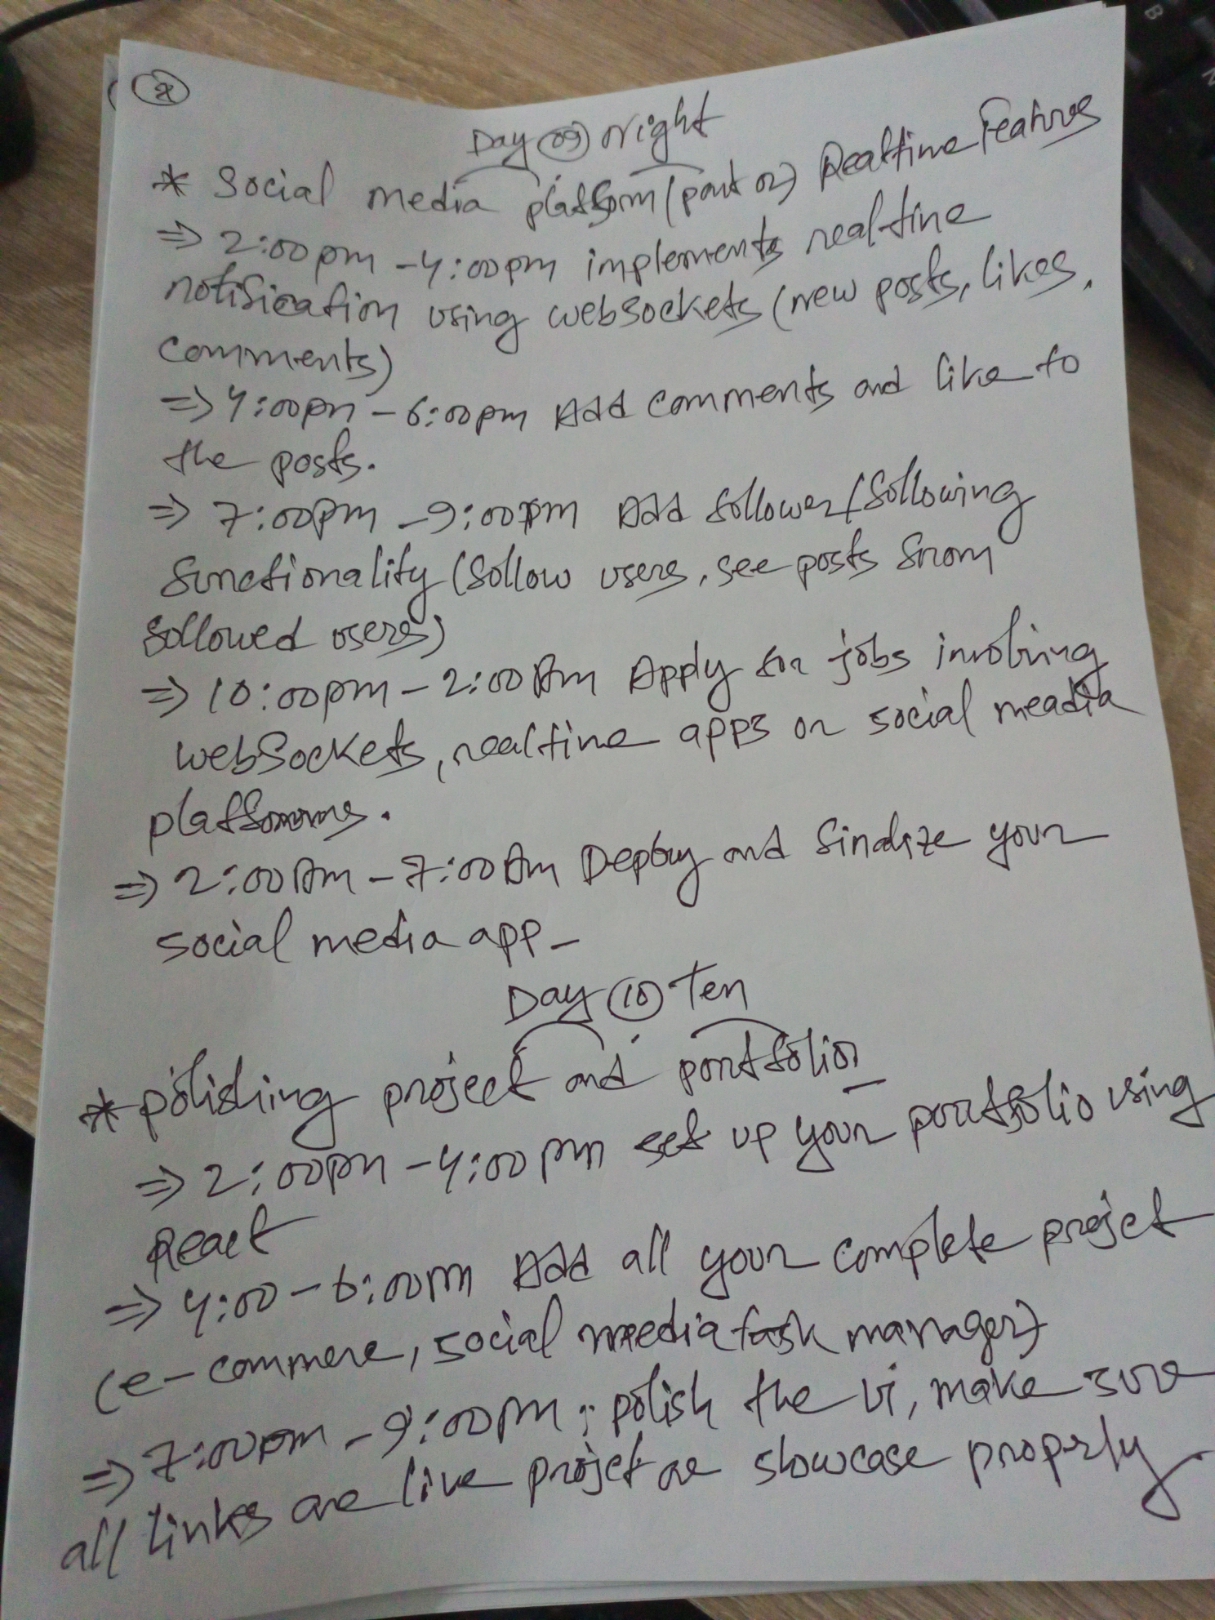 Day 09 Night
* Social media platform (part 02) Realtime Features
⇒ 2:00pm - 4:00pm implements real-time
notification using websockets (new posts, likes,
comments)
⇒ 4:00pm - 6:00pm Add comments and like to
the posts.
⇒ 7:00pm - 9:00pm Add follower/following
functionality (follow users, see posts from
followed users)
⇒ 10:00pm - 2:00Am Apply for jobs involving
webSockets, realtime apps or social meadia
platforms.
⇒ 2:00Am - 7:00Am Deploy and finalize your
social media app -
Day 10 Ten
* polishing project and portfolio
⇒ 2:00pm - 4:00pm set up your portfolio using
React
⇒ 4:00 - 6:00pm Add all your complete projet
(e-commere, social media task manager)
⇒ 7:00pm - 9:00pm; polish the ui, make sure
all links are live projet are slowcase properly.